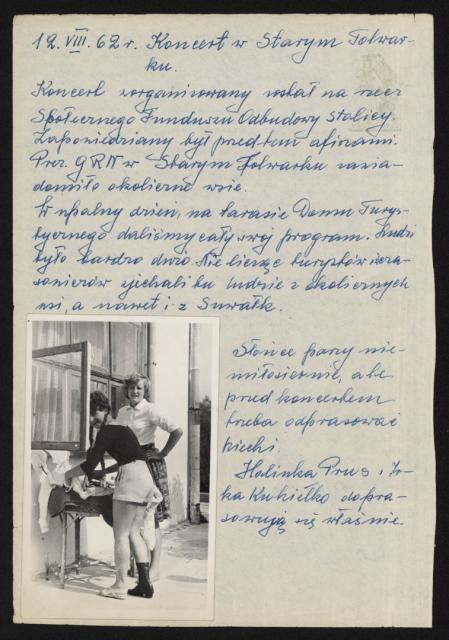 12. VIII. 62 r. Koncert w Starym Folwar-
ku.
Koncert zorganizowany został na rzecz
Społecznego Funduszu Odbudowy Stolicy.
Zapowiedziany był przedtem afiszami.
Prez. GRN w Starym Folwarku zawia-
domiło okoliczne wsie.
W upalny dzień, na tarasie Domu Turys-
tycznego daliśmy cały swój program. Ludzi
było bardzo dużo. Nie licząc turystów i wcza-
sowiczów zjechali tu ludzie z okolicznych
wsi, a nawet i z Suwałk.
Słońce parzy nie-
miłosiernie, ale
przed koncertem
trzeba odprasować
kiecki.
Halinka Prus i Ir-
ka Kukiełko dopra-
sowują się właśnie.